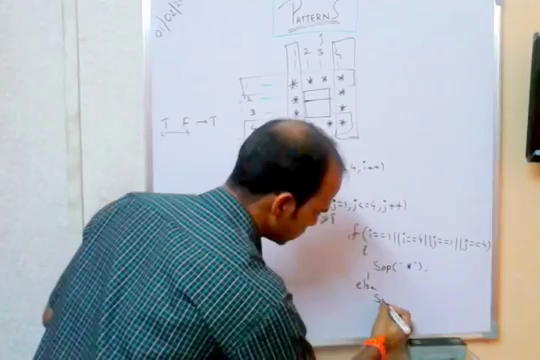 01/02/
PATTERNS
j
1 2 3 4
* * * *
2 * *
3 * *
* *
T F → T
4, i++)
j=1, j<=4, j++)
if (i==1||i==4||j==1||j==4)
{
Sop("*").
}
else